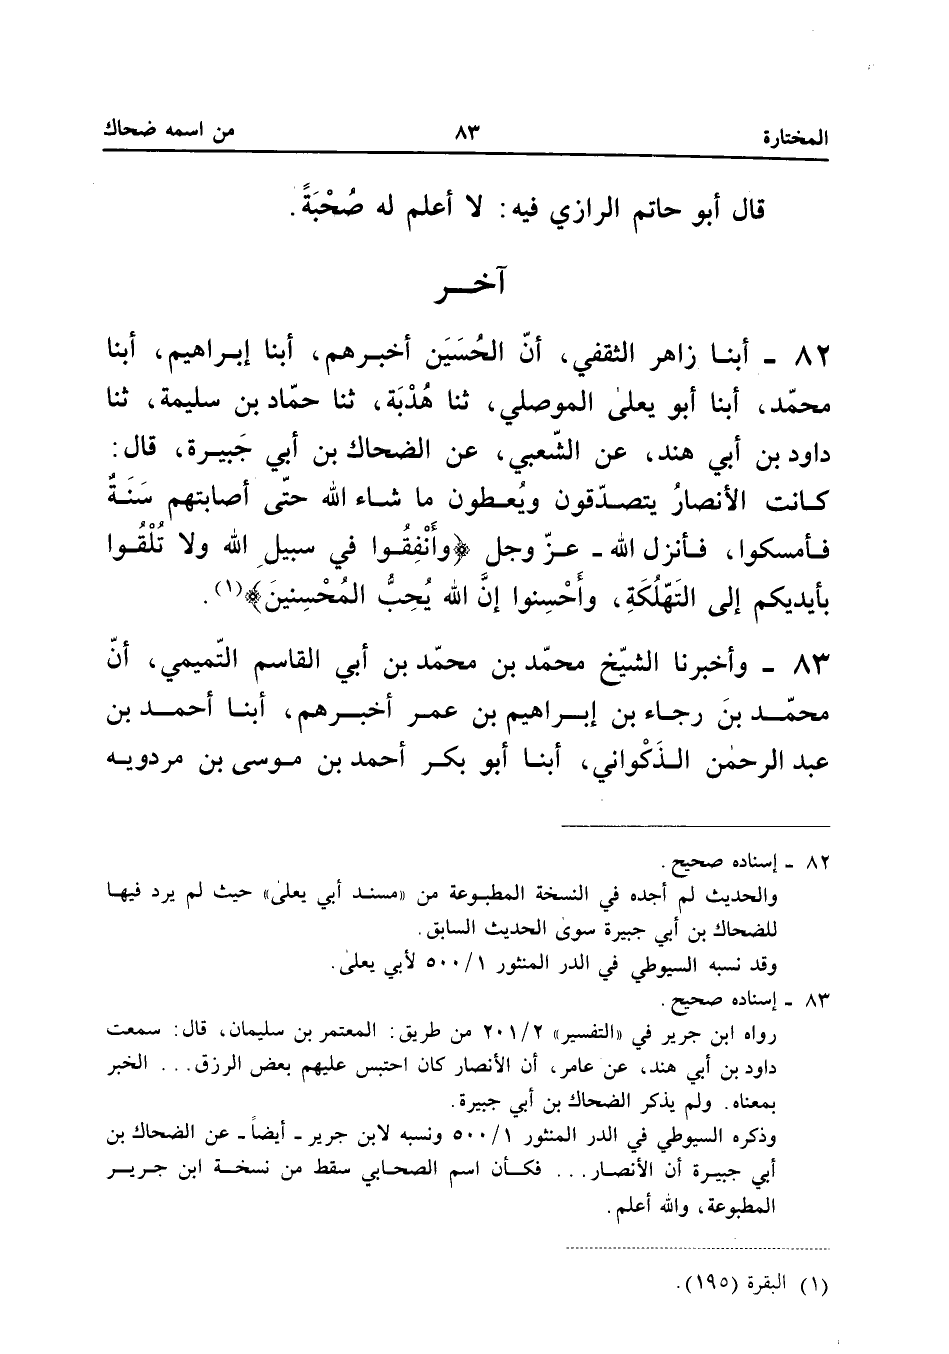 المختارة ٨٣ من اسمه ضحاك
قال أبو حاتم الرازي فيه: لا أعلم له صُحْبَةً.
آخـــر
٨٢ - أبنـا زاهر الثقفي، أنّ الحُسَيَن أخبـرهم، أبنا إبـراهيم، أبنا
محمّد، أبنا أبو يعلىٰ الموصلي، ثنا هُدْبَة، ثنا حمّاد بن سليمة، ثنا
داود بن أبي هند، عن الشّعبي، عن الضحاك بن أبي جَبيرة، قال:
كـانت الأنصارُ يتصـدّقون ويُعـطون ما شـاء الله حتّى أصابتهم سَنَـةٌ
فـأمسكوا، فـأنزل الله - عـزّ وجل ﴿وأَنْفِقُـوا في سبيلِ الله ولا تُلْقُـوا
بأيديكم إلى التَهّلُكَةِ، وأَحْسِنوا إنَّ الله يُحِبُّ المُحْسِنينَ﴾(١).
٨٣ - وأخبرنا الشيّخ محمّد بن محمّد بن أبي القاسم التّميمي، أنّ
محمّــد بنَ رجـاء بن إبـراهيم بن عمـر أخبــرهم، أبنـا أحمــد بن
عبد الرحمٰن الـذَكْواني، أبنـا أبو بكـر أحمد بن مـوسى بن مردويـه
٨٢ - إسناده صحيح.
والحديث لم أجده في النسخة المطبوعة من «مسند أبي يعلىٰ» حيث لم يرد فيهـا
للضحاك بن أبي جبيرة سوىٰ الحديث السابق.
وقد نسبه السيوطي في الدر المنثور ٥٠٠/١ لأبي يعلىٰ.
٨٣ - إسناده صحيح.
رواه ابن جرير في «التفسير» ٢٠١/٢ من طريق: المعتمر بن سليمان، قال: سمعت
داود بن أبي هند، عن عامر، أن الأنصار كان احتبس عليهم بعض الرزق... الخبر
بمعناه. ولم يذكر الضحاك بن أبي جبيرة.
وذكره السيوطي في الدر المنثور ٥٠٠/١ ونسبه لابن جرير - أيضاً - عن الضحاك بن
أبي جبيـرة أن الأنصـار... فكـأن اسم الصحابي سقط من نسخـة ابن جـريـر
المطبوعة، والله أعلم.
(١) البقرة (١٩٥).